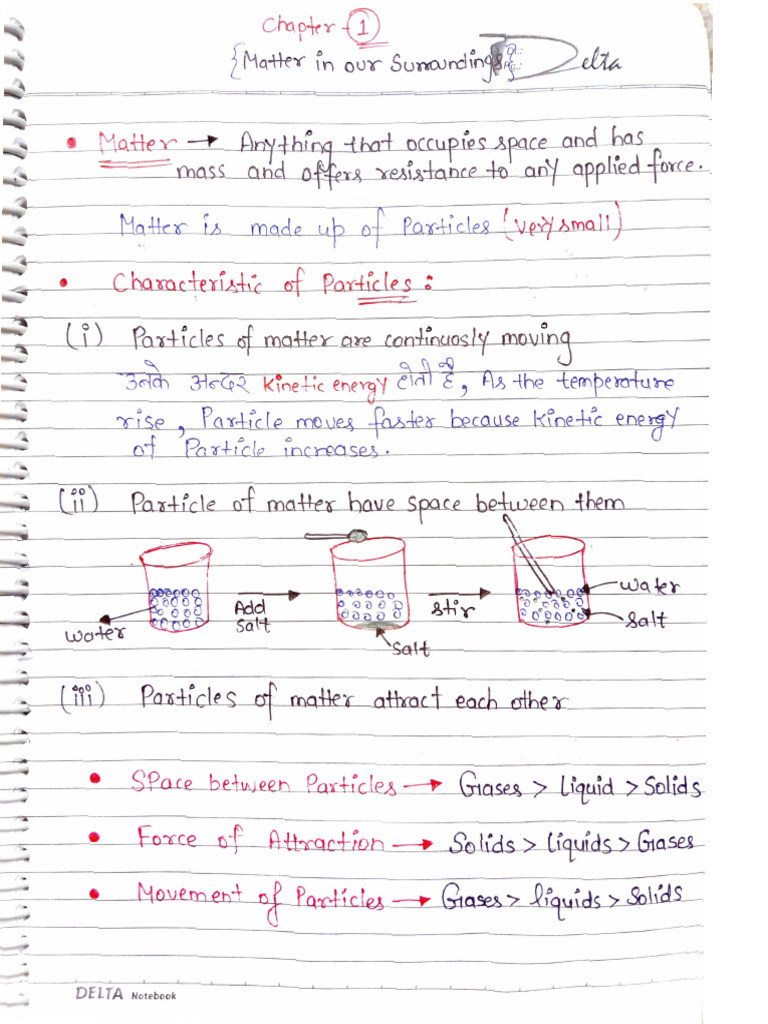 Chapter - 1
{Matter in our Surroundings} Delta
• Matter → Anything that occupies space and has
mass and offers resistance to any applied force.
Matter is made up of Particles (very small)
• Characteristic of Particles :
(i) Particles of matter are continuosly moving
उनके अन्दर Kinetic energy होती है, As the temperature
rise, Particle moves faster because kinetic energy
of Particle increases.
(ii) Particle of matter have space between them
water
Add
salt
salt
stir
water
salt
(iii) Particles of matter attract each other
• Space between Particles → Gases > liquid > Solids
• Force of Attraction → Solids > liquids > Gases
• Movement of Particles → Gases > liquids > solids
DELTA Notebook